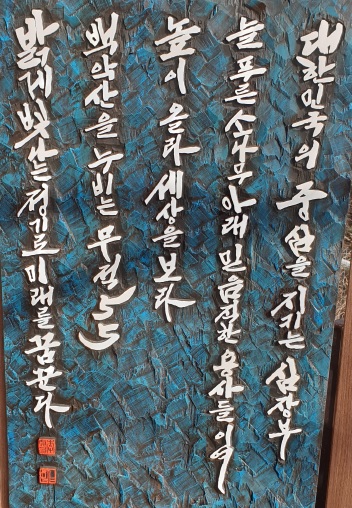 대한민국의 중심을 지키는 심장부
늘 푸른 소나무 아래 민첩한 용사들이여
높이 올라 세상을 보라
백악산을 누비는 무적 55
밝게 빛나는 정기로 미래를 꿈꾼다